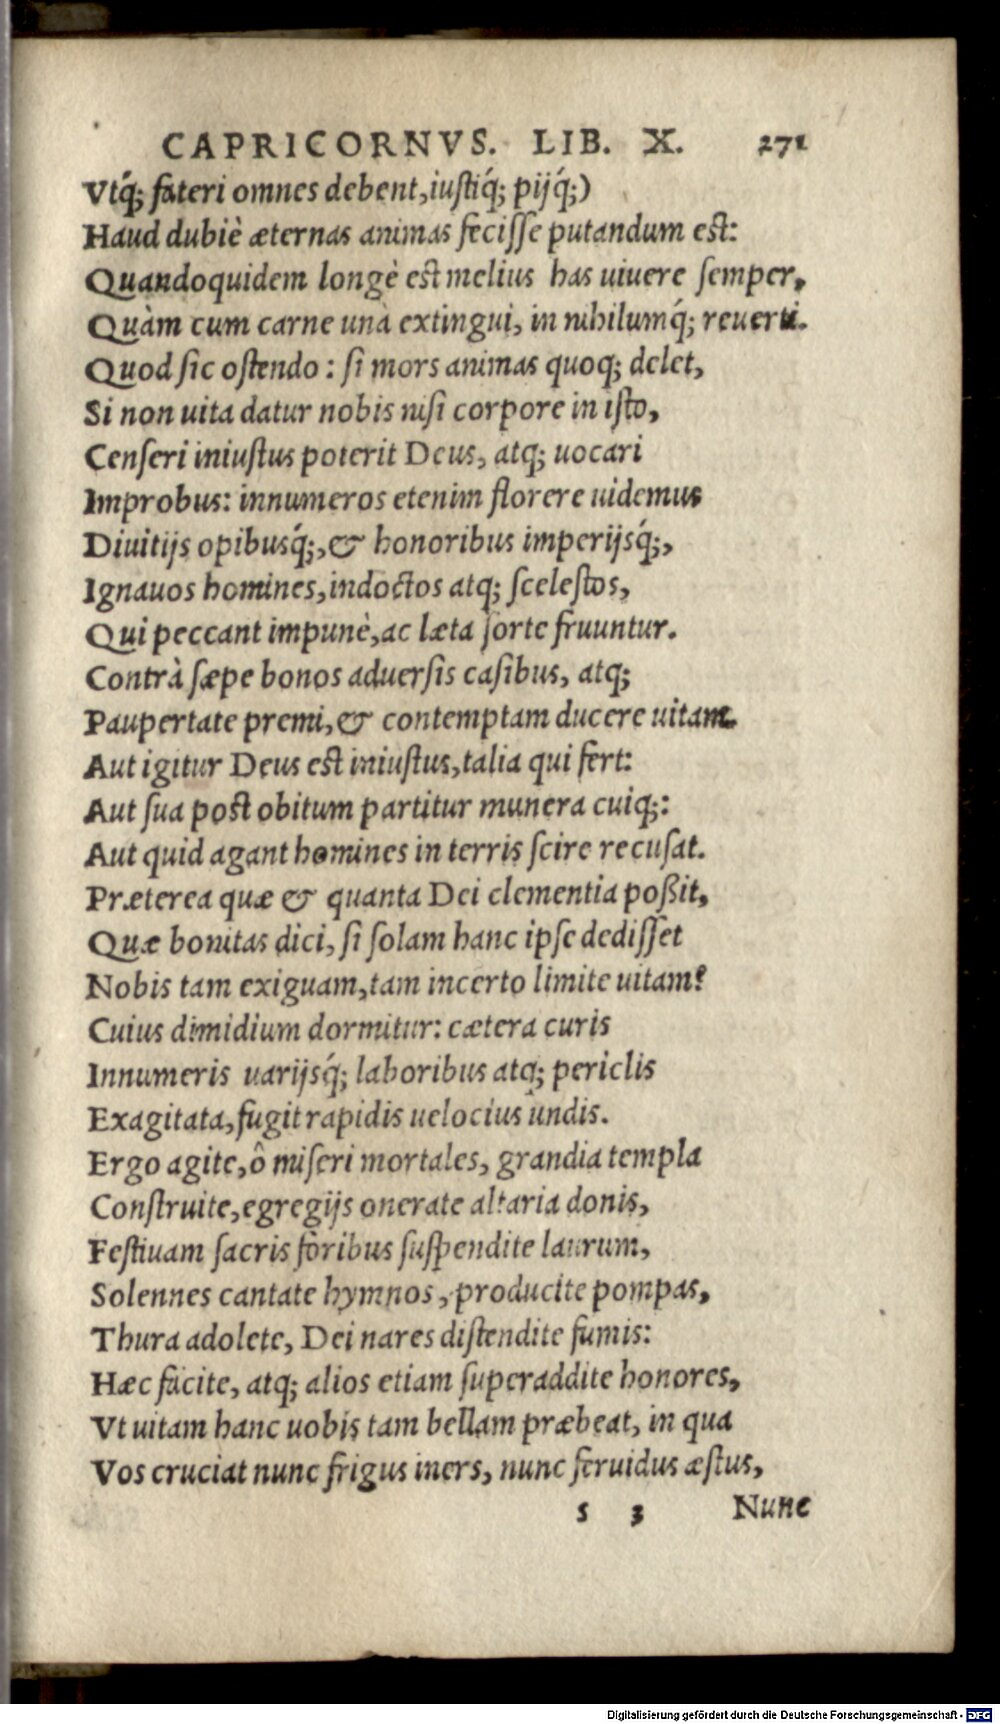 CAPRICORNVS. LIB. X. 271
Vtq́; fateri omnes debent, iustiq́; pijq́;)
Haud dubiè æternas animas fecisse putandum est:
Quandoquidem longè est melius has uiuere semper,
Quàm cum carne unà extingui, in nihilumq́; reuerti.
Quod sic ostendo: si mors animas quoq; delet,
Si non uita datur nobis nisi corpore in isto,
Censeri iniustus poterit Deus, atq; uocari
Improbus: innumeros etenim florere uidemus
Diuitijs opibusq́;, & honoribus imperijsq́;,
Ignauos homines, indoctos atq; scelestos,
Qui peccant impunè, ac læta sorte fruuntur.
Contrà sæpe bonos aduersis casibus, atq;
Paupertate premi, & contemptam ducere uitam.
Aut igitur Deus est iniustus, talia qui fert:
Aut sua post obitum partitur munera cuiq;:
Aut quid agant homines in terris scire recusat.
Præterea quæ & quanta Dei clementia poßit,
Quæ bonitas dici, si solam hanc ipse dedisset
Nobis tam exiguam, tam incerto limite uitam?
Cuius dimidium dormitur: cætera curis
Innumeris uarijsq́; laboribus atq; periclis
Exagitata, fugit rapidis uelocius undis.
Ergo agite, ô miseri mortales, grandia templa
Construite, egregijs onerate altaria donis,
Festiuam sacris foribus suspendite laurum,
Solennes cantate hymnos, producite pompas,
Thura adolete, Dei nares distendite fumis:
Hæc facite, atq; alios etiam superaddite honores,
Vt uitam hanc uobis tam bellam præbeat, in qua
Vos cruciat nunc frigus iners, nunc feruidus æstus,
s 3 Nunc
Digitalisierung gefördert durch die Deutsche Forschungsgemeinschaft - DFG